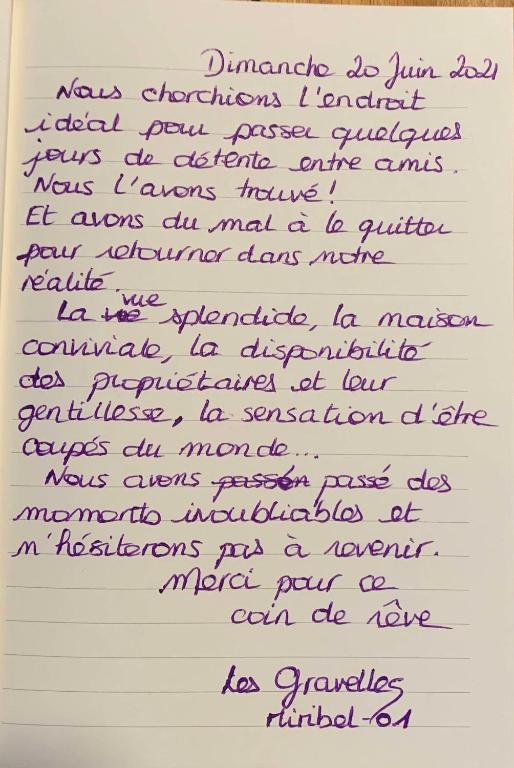 Dimanche 20 Juin 2021
Nous cherchions l'endroit
idéal pour passer quelques
jours de détente entre amis.
Nous l'avons trouvé!
Et avons du mal à le quitter
pour retourner dans notre
réalité.
La vue splendide, la maison
conviviale, la disponibilité
des propriétaires et leur
gentillesse, la sensation d'être
coupés du monde...
Nous avons passé des
moments inoubliables et
n'hésiterons pas à revenir.
Merci pour ce
coin de rêve
Les Gravelles
Miribel-01